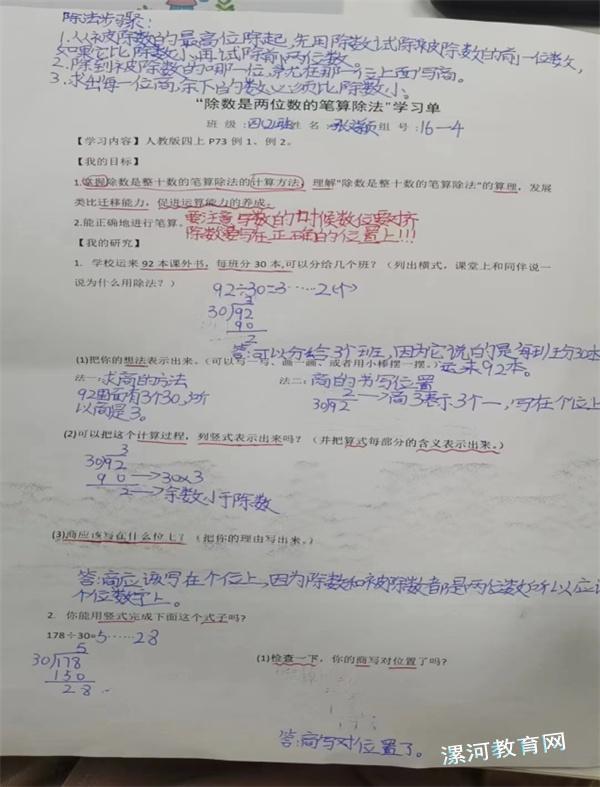 除法步骤:
1.从被除数的最高位除起,先用除数试除被除数的前一位数,
如果它比除数小,再试除前两位数。
2.除到被除数的哪一位,就在那一位上面写商。
3.求出每一位商,余下的数必须比除数小。
“除数是两位数的笔算除法”学习单
班 级: 姓 名: 组 号:16—4
【学习内容】人教版四上 P73 例 1、例 2。
【我的目标】
1.掌握除数是整十数的笔算除法的计算方法,理解“除数是整十数的笔算除法”的算理,发展
类比迁移能力,促进运算能力的养成。
2.能正确地进行笔算。要注意写数的时候数位要对齐
除数要写在正确的位置上!!!
【我的研究】
1. 学校运来 92 本课外书,每班分 30 本,可以分给几个班?(列出横式,课堂上和同伴说一
说为什么用除法?)
92÷30=3……2(个)
3
30)92
90
2
答:可以分给3个班,因为它说的是每班分30本
运来92本。
(1)把你的想法表示出来。(可以写一写、画一画、或者用小棒摆一摆。)
法一:求商的方法
92里面有3个30,所
以商是3。
法二:商的书写位置
2→商3表示3个一,写在个位上
30)92
(2)可以把这个计算过程,列竖式表示出来吗?(并把算式每部分的含义表示出来。)
3
30)92
90→30×3
2→余数小于除数
(3)商应该写在什么位上?(把你的理由写出来。)
答:商应该写在个位上,因为除数和被除数都是两位数所以应该
个位数字上。
2. 你能用竖式完成下面这个式子吗?
178÷30=5……28
5
30)178
150
28
(1)检查一下,你的商写对位置了吗?
答:商写对位置了。
漯河教育网